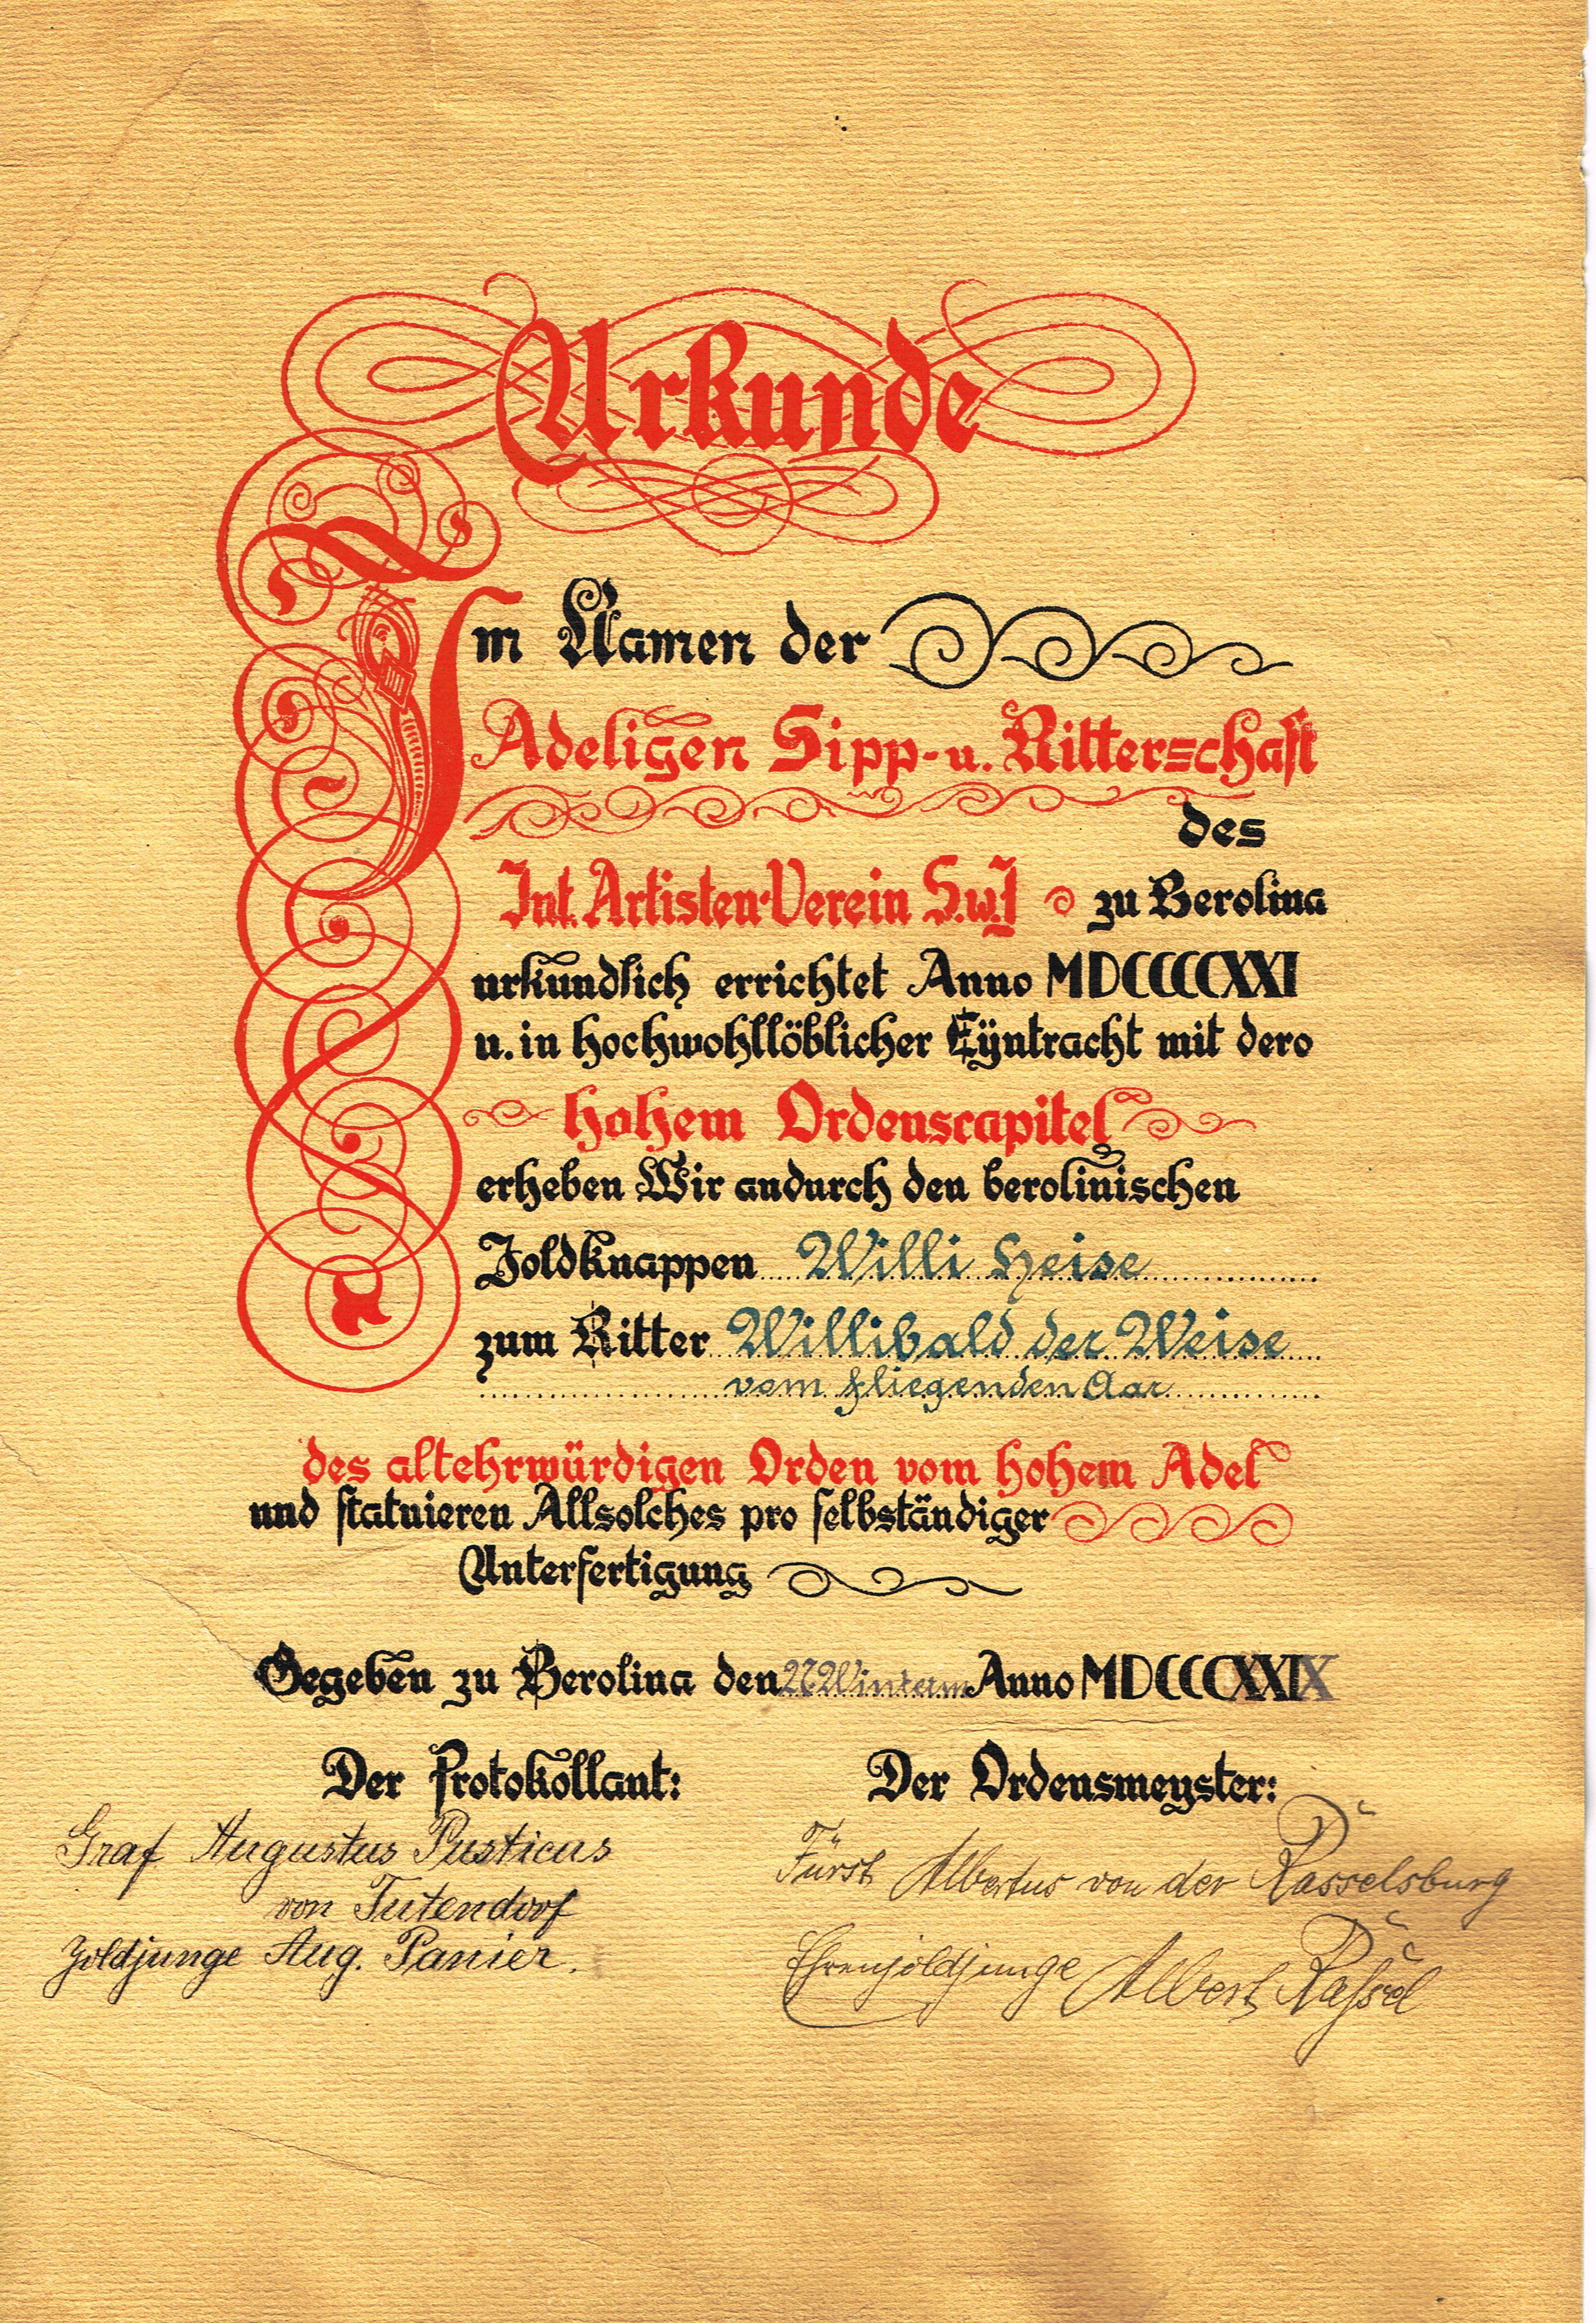 Urkunde
Im Namen der
Adeligen Sipp- u. Ritterschaft
des
Int. Artisten-Verein S.w.J zu Berolina
urkundlich errichtet Anno MDCCCCXXI
u. in hochwohllöblicher Eÿntracht mit dero
hohem Ordenscapitel
erheben Wir andurch den berolinischen
Joldknappen Willi Heise
zum Ritter Willibald der Weise
vom fliegenden Aar
des altehrwürdigen Orden vom hohem Adel
und statuieren Allsolches pro selbständiger
Unterfertigung
Gegeben zu Berolina den Anno MDCCCXXIX
Der Protokollant: Der Ordensmeyster:
Graf Augustus Pusticus
von Tutendorf
Joldjunge Aug. Panier.
Fürst Albertus von der Rasselsburg
Ehrenjoldjunge Albert Raßel